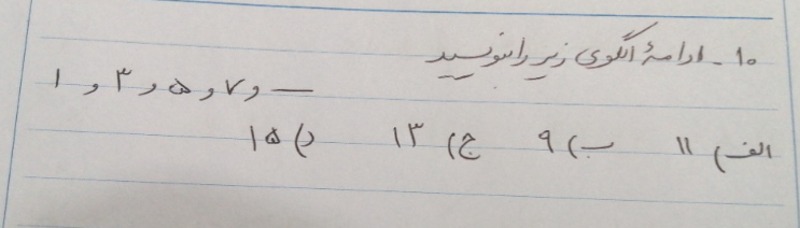 ۱۰ - ادامهٔ الگوی زیر را بنویسید
۱ و ۳ و ۵ و ۷ و —
الف) ۱۱ ب) ۹ ج) ۱۳ د) ۱۵